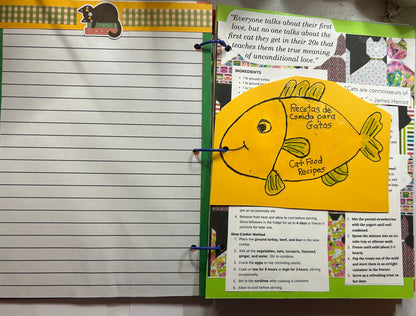 "Everyone talks about their first
love, but no one talks about the
first cat they get in their 20s that
teaches them the true meaning
of unconditional love."
INGREDIENTS
1 lb ground turkey
Cats are connoisseurs of
- James Herriot
Recetas de
Comida para
Gatos
Cat Food
Recipes
put an occasionally stir.
6. Remove from heat and allow to cool before serving.
Store leftovers in the fridge for up to 4 days or freeze in
portions for later use.
Slow Cooker Method
1. Place the ground turkey, beef, and liver in the slow
cooker.
2. Add all the vegetables, oats, turmeric, flaxseed,
ginger, and water. Stir to combine.
3. Crack the eggs on top (including shells).
4. Cook on low for 6 hours or high for 3 hours, stirring
occasionally.
5. Stir in the sardines after cooking is complete.
6. Allow to cool before serving.
1. Mix the pureed strawberries
with the yogurt until well
combined.
2. Spoon the mixture into an ice
cube tray or silicone mold.
3. Freeze until solid about 2-3
hours).
4. Pop the treats out of the mold
and store them in an airtight
container in the freezer.
5. Serve as a refreshing treat on
hot days.